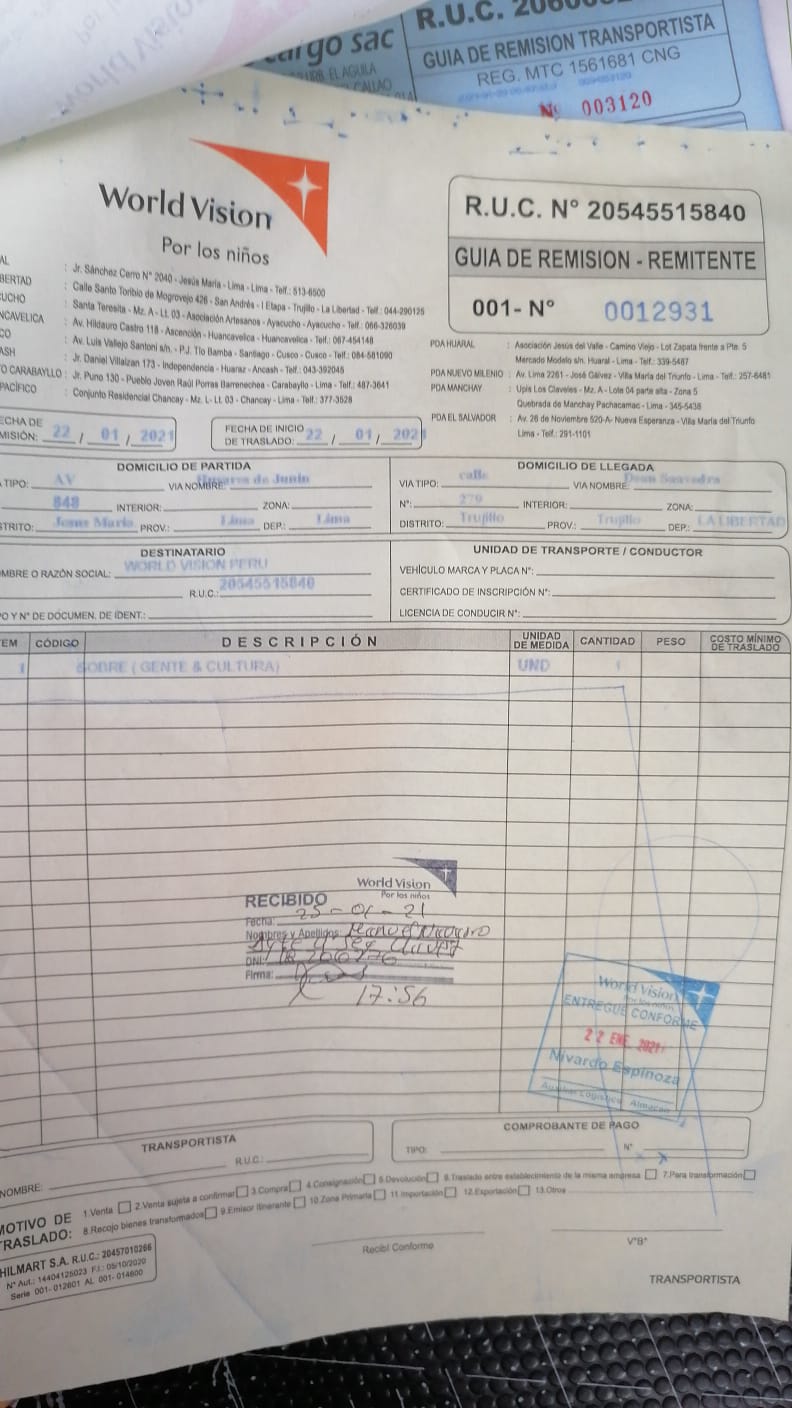 argo sac
EL AGUILA
CALLAO
R.U.C. 20
GUIA DE REMISION TRANSPORTISTA
REG. MTC 1561681 CNG
Nº 003120
World Vision
Por los niños
R.U.C. N° 20545515840
GUIA DE REMISION - REMITENTE
001- N° 0012931
AL : Jr. Sánchez Cerro N° 2040 - Jesús María - Lima - Lima - Telf.: 513-6500
BERTAD : Calle Santo Toribio de Mogrovejo 426 - San Andrés - I Etapa - Trujillo - La Libertad - Telf.: 044-290125
UCHO : Santa Teresita - Mz. A - Lt. 03 - Asociación Artesanos - Ayacucho - Ayacucho - Telf.: 066-326039
NCAVELICA : Av. Hildauro Castro 118 - Ascención - Huancavelica - Huancavelica - Telf.: 067-454148
CO : Av. Luis Vallejo Santoni s/n. - P.J. Tío Bamba - Santiago - Cusco - Cusco - Telf.: 084-581090
ASH : Jr. Daniel Villaizan 173 - Independencia - Huaraz - Ancash - Telf.: 043-392045
O CARABAYLLO : Jr. Puno 130 - Pueblo Joven Raúl Porras Barrenechea - Carabayllo - Lima - Telf.: 487-3641
PACÍFICO : Conjunto Residencial Chancay - Mz. L- Lt. 03 - Chancay - Lima - Telf.: 377-3528
PDA HUARAL : Asociación Jesús del Valle - Camino Viejo - Lot Zapata frente a Pte. 5
Mercado Modelo s/n. Huaral - Lima - Telf.: 339-5487
PDA NUEVO MILENIO : Av. Lima 2261 - José Gálvez - Villa María del Triunfo - Lima - Telf.: 257-6481
PDA MANCHAY : Upis Los Claveles - Mz. A - Lote 04 parte alta - Zona 5
Quebrada de Manchay Pachacamac - Lima - 345-5438
PDA EL SALVADOR : Av. 26 de Noviembre 520-A- Nueva Esperanza - Villa María del Triunfo
Lima - Telf.: 291-1101
ECHA DE
MISIÓN: 22 / 01 / 2021
FECHA DE INICIO
DE TRASLADO: 22 / 01 / 202
DOMICILIO DE PARTIDA
TIPO: AV VIA NOMBRE: de Junin
848 INTERIOR: ZONA:
STRITO: Jesus Maria PROV.: Lima DEP.: Lima
DOMICILIO DE LLEGADA
VIA TIPO: calle VIA NOMBRE: Dean Saavedra
N°: 279 INTERIOR: ZONA:
DISTRITO: Trujillo PROV.: Trujillo DEP.: LA LIBERTAD
DESTINATARIO
MBRE O RAZÓN SOCIAL: WORLD VISION PERU
R.U.C.: 20545515840
PO Y N° DE DOCUMEN. DE IDENT.:
UNIDAD DE TRANSPORTE / CONDUCTOR
VEHÍCULO MARCA Y PLACA N°:
CERTIFICADO DE INSCRIPCIÓN N°:
LICENCIA DE CONDUCIR N°:
EM CÓDIGO DESCRIPCIÓN UNIDAD DE MEDIDA CANTIDAD PESO COSTO MÍNIMO DE TRASLADO
1 SOBRE ( GENTE & CULTURA) UND 1
World Vision
Por los niños
RECIBIDO
Fecha: 25-01-21
Nombres y Apellidos: Manuel Navarro
DNI:
Firma:
17:56
World Vision
Por los niños
ENTREGUE CONFORME
22 ENE. 2021
Nivardo Espinoza
Auxiliar Logistica Almacen
TRANSPORTISTA
NOMBRE: R.U.C.:
COMPROBANTE DE PAGO
TIPO: N°
MOTIVO DE
TRASLADO:
1.Venta 2.Venta sujeta a confirmar 3.Compra 4.Consignación 5.Devolución 6.Traslado entre establecimiento de la misma empresa 7.Para transformación
8.Recojo bienes transformados 9.Emisor Itinerante 10.Zona Primaria 11.Importación 12.Exportación 13.Otros
HILMART S.A. R.U.C.: 20457010266
N° Aut.: 14404125023 F.I.: 05/10/2020
Serie 001- 012601 AL 001- 014600
Recibí Conforme
V°B°
TRANSPORTISTA